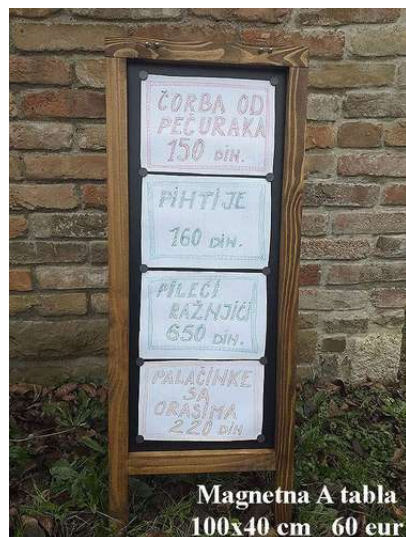 ČORBA OD
PEČURAKA
150 DIN.
PIHTIJE
160 DIN.
PILEĆI
RAŽNJIĆI
650 DIN.
PALAČINKE
SA
ORASIMA
220 DIN
Magnetna A tabla
100x40 cm 60 eur